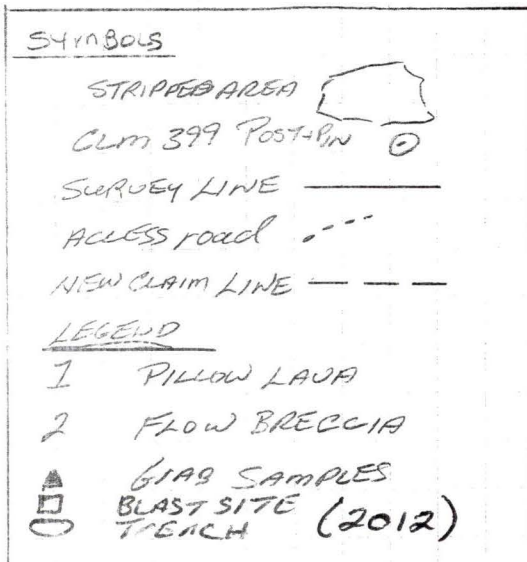 SYMBOLS
STRIPPED AREA
CLM 399 POST+PIN
SURVEY LINE
ACCESS road
NEW CLAIM LINE
LEGEND
1 PILLOW LAVA
2 FLOW BRECCIA
GRAB SAMPLES
BLAST SITE
TRENCH (2012)